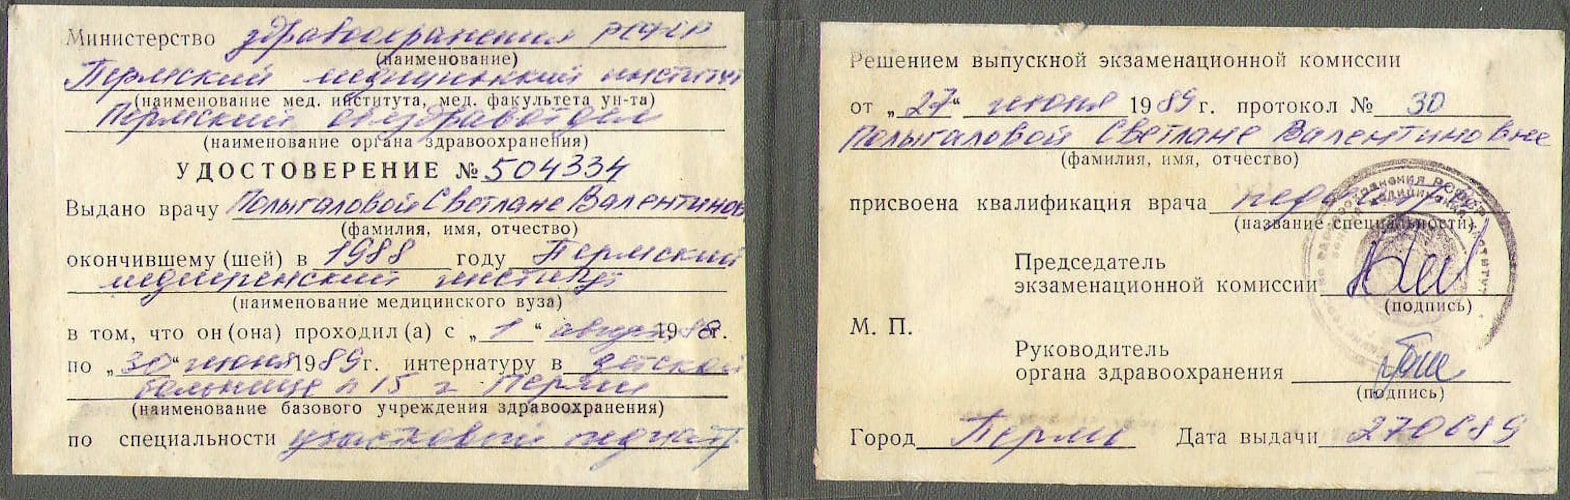 Министерство здравоохранения РСФСР
(наименование)
Пермский медицинский институт
(наименование мед. института, мед. факультета ун-та)
Пермский облздравотдел
(наименование органа здравоохранения)
УДОСТОВЕРЕНИЕ № 504334
Выдано врачу Полыгаловой Светлане Валентинов
(фамилия, имя, отчество)
окончившему (шей) в 1988 году Пермский
медицинский институт
(наименование медицинского вуза)
в том, что он (она) проходил (а) с „1“ августа 1988г.
по „30“ июня 1989г. интернатуру в детской
больнице n 15 г Перми
(наименование базового учреждения здравоохранения)
по специальности участковый педиатр
Решением выпускной экзаменационной комиссии
от „27“ июня 1989г. протокол № 30
Полыгаловой Светлане Валентиновне
(фамилия, имя, отчество)
присвоена квалификация врача педиатра
(название специальности)
Председатель
экзаменационной комиссии
(подпись)
М. П.
Руководитель
органа здравоохранения
(подпись)
Город Пермь Дата выдачи 270689